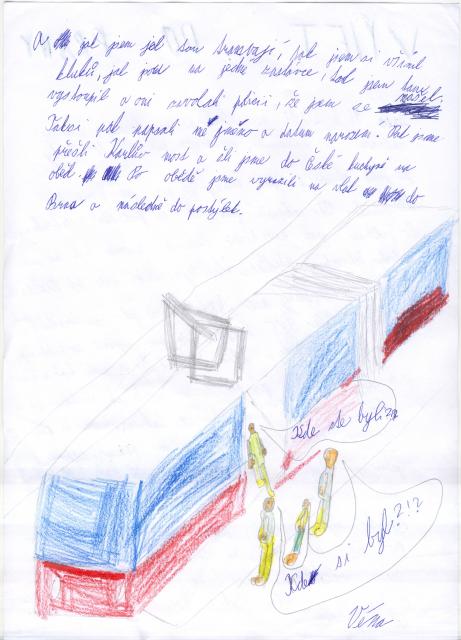 A jak jsem jel tou tramvají, tak jsem si všiml
kluků, jak jsou na jedné zastávce, tak jsem tam
vystoupil a oni zavolali policii, že jsem se našel.
pak napsali mé jméno a datum narození! Pak jsme
přešli Karlův most a šli jsme do České kuchyně na
oběd. Po obědě jsme vyrazili na vlak do
Brna a následně do postýlek.
Kde ste byli??
Kde si byl?!?
Véna